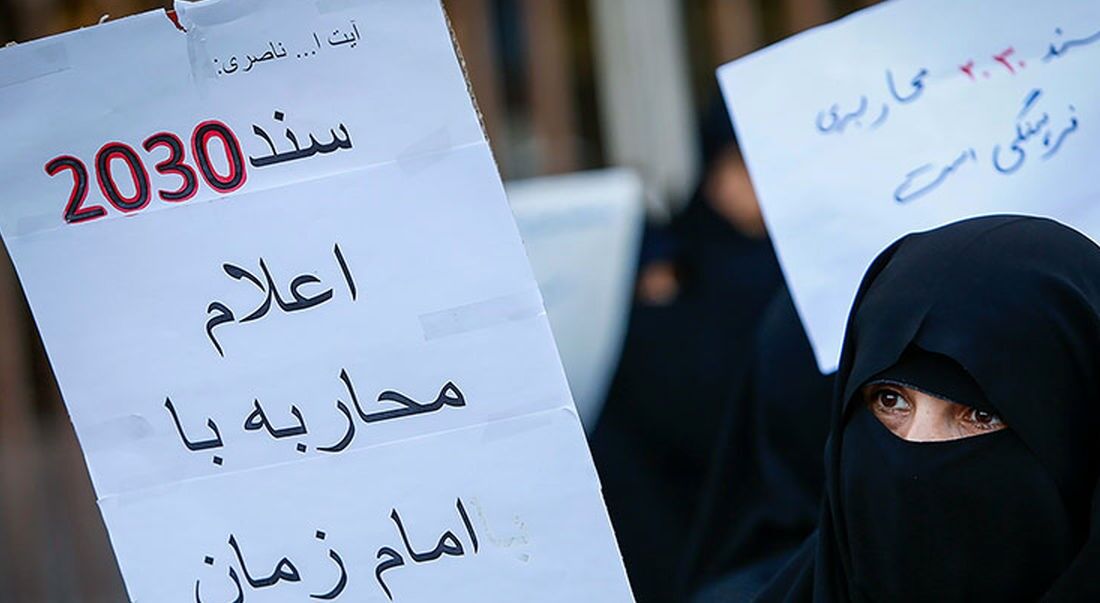 آیت ا... ناصری:
سند 2030
اعلام
محاربه با
با امام زمان
سند ۲۰۳۰ محاربه‌ی
فرهنگی است